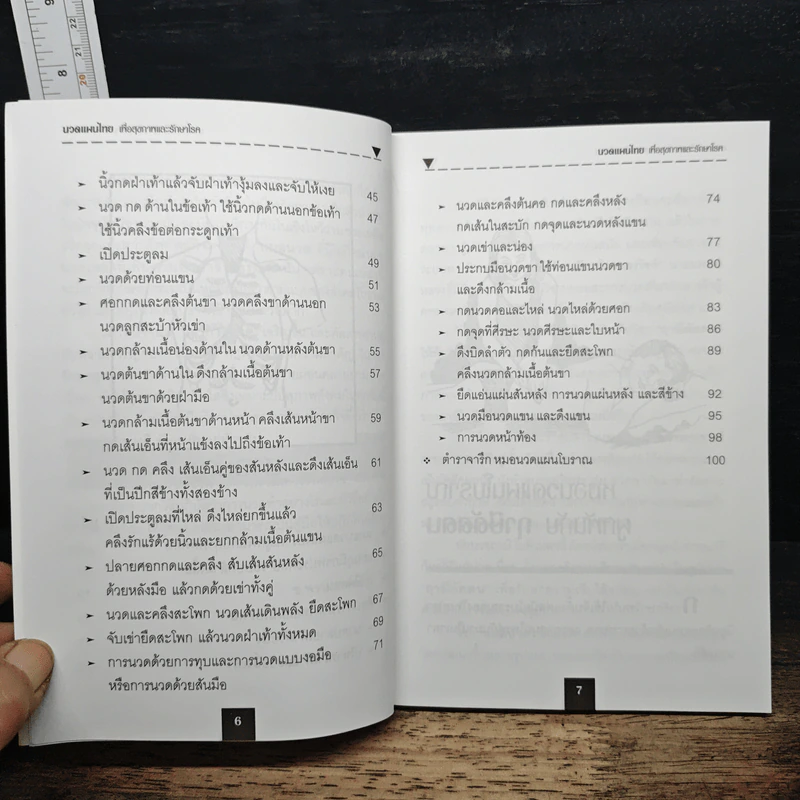 9
22
21
8
20
นวดแผนไทย เพื่อสุขภาพและรักษาโรค
นิ้วกดฝ่าเท้าแล้วจับฝ่าเท้างุ้มลงและจับให้เงย 45
นวด กด ด้านในข้อเท้า ใช้นิ้วกดด้านนอกข้อเท้า 47
ใช้นิ้วคลึงข้อต่อกระดูกเท้า
เปิดประตูลม 49
นวดด้วยท่อนแขน 51
ศอกกดและคลึงต้นขา นวดคลึงขาด้านนอก 53
นวดลูกสะบ้าหัวเข่า
นวดกล้ามเนื้อน่องด้านใน นวดด้านหลังต้นขา 55
นวดต้นขาด้านใน ดึงกล้ามเนื้อต้นขา 57
นวดต้นขาด้วยฝ่ามือ
นวดกล้ามเนื้อต้นขาด้านหน้า คลึงเส้นหน้าขา 59
กดเส้นเอ็นที่หน้าแข้งลงไปถึงข้อเท้า
นวด กด คลึง เส้นเอ็นคู่ของสันหลังและดึงเส้นเอ็น 61
ที่เป็นปีกสีข้างทั้งสองข้าง
เปิดประตูลมที่ไหล่ ดึงไหล่ยกขึ้นแล้ว 63
คลึงรักแร้ด้วยนิ้วและยกกล้ามเนื้อต้นแขน
ปลายศอกกดและคลึง สับเส้นสันหลัง 65
ด้วยหลังมือ แล้วกดด้วยเข่าทั้งคู่
นวดและคลึงสะโพก นวดเส้นเดินพลัง ยืดสะโพก 67
จับเข่ายืดสะโพก แล้วนวดฝ่าเท้าทั้งหมด 69
การนวดด้วยการทุบและการนวดแบบงอมือ 71
หรือการนวดด้วยสันมือ
6
นวดแผนไทย เพื่อสุขภาพและรักษาโรค
นวดและคลึงต้นคอ กดและคลึงหลัง 74
กดเส้นในสะบัก กดจุดและนวดหลังแขน
นวดเข่าและน่อง 77
ประกบมือนวดขา ใช้ท่อนแขนนวดขา 80
และดึงกล้ามเนื้อ
กดนวดคอและไหล่ นวดไหล่ด้วยศอก 83
กดจุดที่ศีรษะ นวดศีรษะและใบหน้า 86
ดึงบิดลำตัว กดก้นและยืดสะโพก 89
คลึงนวดกล้ามเนื้อต้นขา
ยืดแอ่นแผ่นสันหลัง การนวดแผ่นหลัง และสีข้าง 92
นวดมือนวดแขน และดึงแขน 95
การนวดหน้าท้อง 98
ตำราจารึก หมอนวดแผนโบราณ 100
7